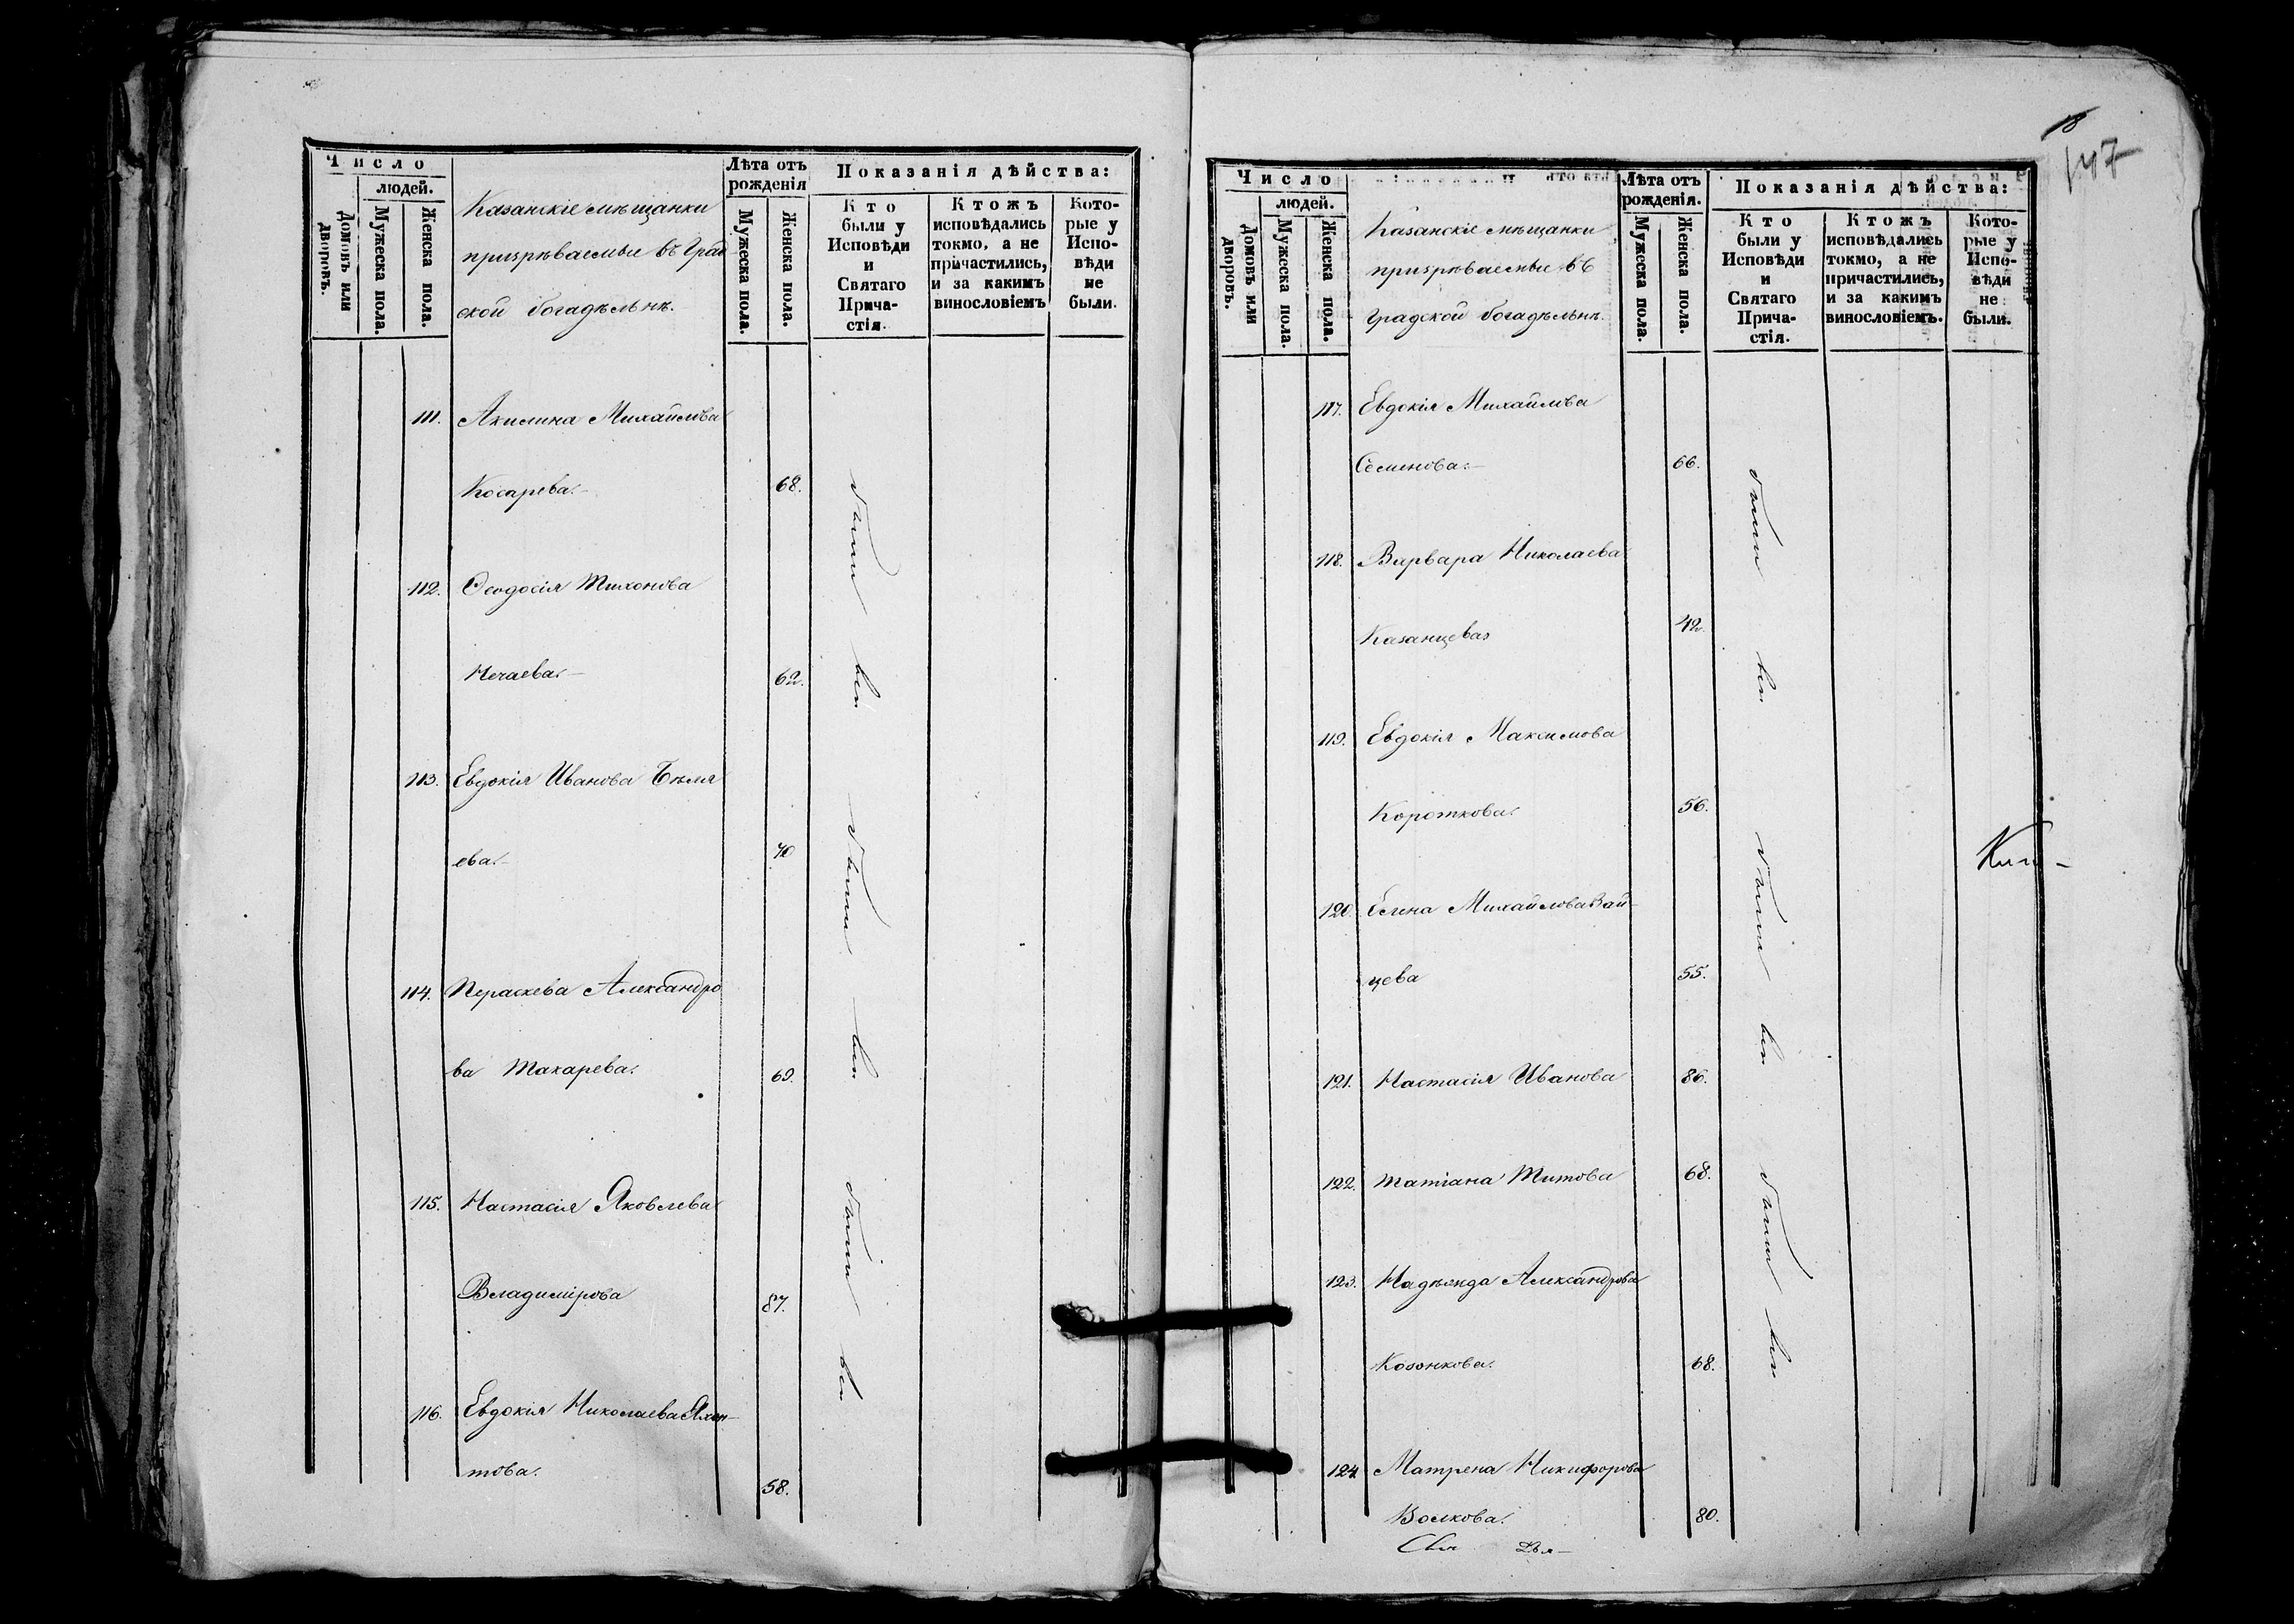 Число
людей.
Домовъ или дворовъ.
Мужеска пола.
Женска пола.
Казанскіе мѣщанки
призрѣваемые въ Град
ской богадѣльнѣ.
Лѣта отъ
рожденія
Мужеска пола.
Женска пола.
Показанія дѣйства:
Кто
были у
Исповѣди
и
Святаго
Прича-
стія.
Ктожъ
исповѣдались
токмо, а не
причастились,
и за какимъ
винословіемъ
Кото-
рые у
Испо-
вѣди
не
были.
111. Акилина Михайлова
Косарева. 68.
112. Ѳеодосія Тихонова
Нечаева. 62.
113. Евдокія Иванова Бѣля
ева. 70
114. Пераскева Александро
ва Макарева. 69.
115. Настасія Яковлева
Владимірова 87.
116. Евдокія Николаева Яхон-
това. 58.
были всѣ
были всѣ
были всѣ
18
147
Число
людей.
Домовъ или дворовъ.
Мужеска пола.
Женска пола.
Казанскіе мѣщанки
призрѣваемые въ
Градской богадѣльнѣ.
Лѣта отъ
рожденія.
Мужеска пола.
Женска пола.
Показанія дѣйства:
Кто
были у
Исповѣди
и
Святаго
Прича-
стія.
Ктожъ
исповѣдались
токмо, а не
причастились,
и за какимъ
винословіемъ.
Кото-
рые у
Испо-
вѣди
не
были.
117. Евдокія Михайлова
Семенова. 66.
118. Варвара Николаева
Казанцева 42.
119. Евдокія Максимова
Короткова. 56.
120 Елена Михайлова Зай-
цева 55.
121. Настасія Иванова 86.
122. Татіана Титова 68.
123. Надѣжда Александрова
Козонкова. 68.
124 Матрена Никифорова
Волкова. 80.
были всѣ
были всѣ
были всѣ